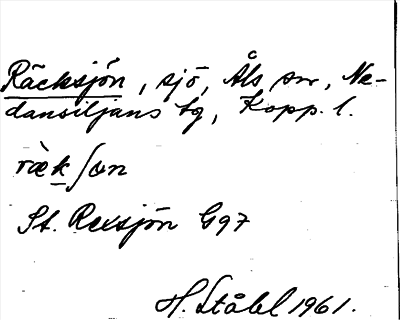 Räcksjön, sjö, Åls sn, Ne-
dansiljans tg, Kopp. l.
rä̀kʃøn
St. Rexsjön G97
H. Ståhl 1961.